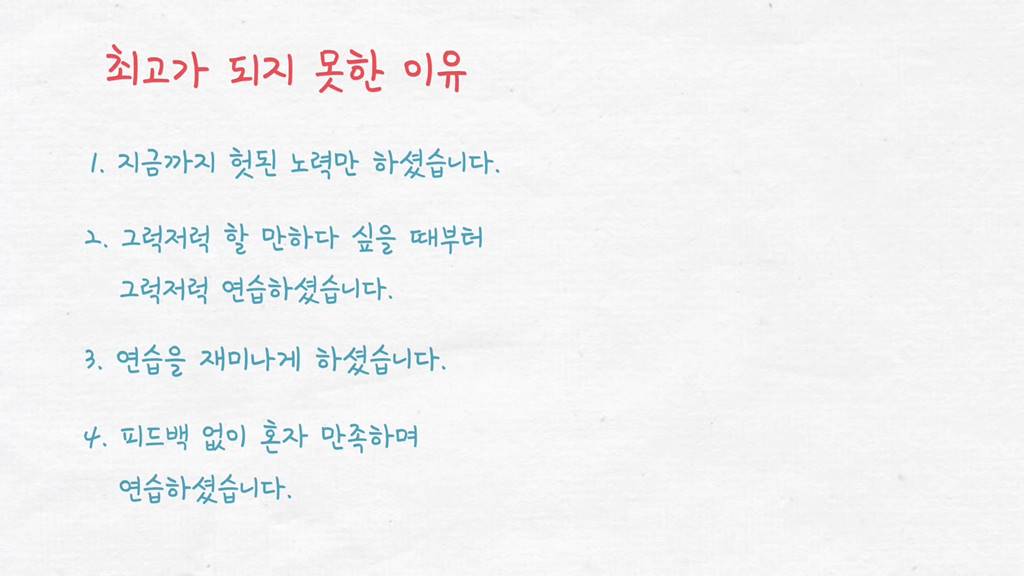 최고가 되지 못한 이유
1. 지금까지 헛된 노력만 하셨습니다.
2. 그럭저럭 할 만하다 싶을 때부터
그럭저럭 연습하셨습니다.
3. 연습을 재미나게 하셨습니다.
4. 피드백 없이 혼자 만족하며
연습하셨습니다.